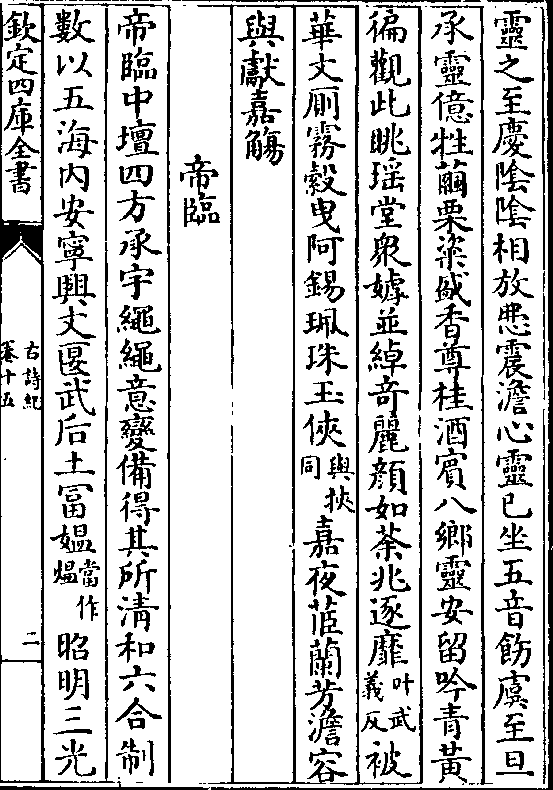 靈之至慶隂隂相放𢠵震澹心靈已坐五音飭虞至旦
承靈億牲繭栗粢盛香尊桂酒賓八鄉靈安留吟青黃
徧觀此眺瑶堂衆嫭並綽竒麗顔如荼兆逐靡叶武義反被
華文厠霧縠曳阿錫珮珠玉俠與挾同嘉夜茝蘭芳澹容
與獻嘉觴
帝臨
帝臨中壇四方承宇繩繩意變備得其所清和六合制
數以五海内安寧興文匽武后土富媪當作煴昭明三光
欽定四庫全書
古詩紀
卷十五
二